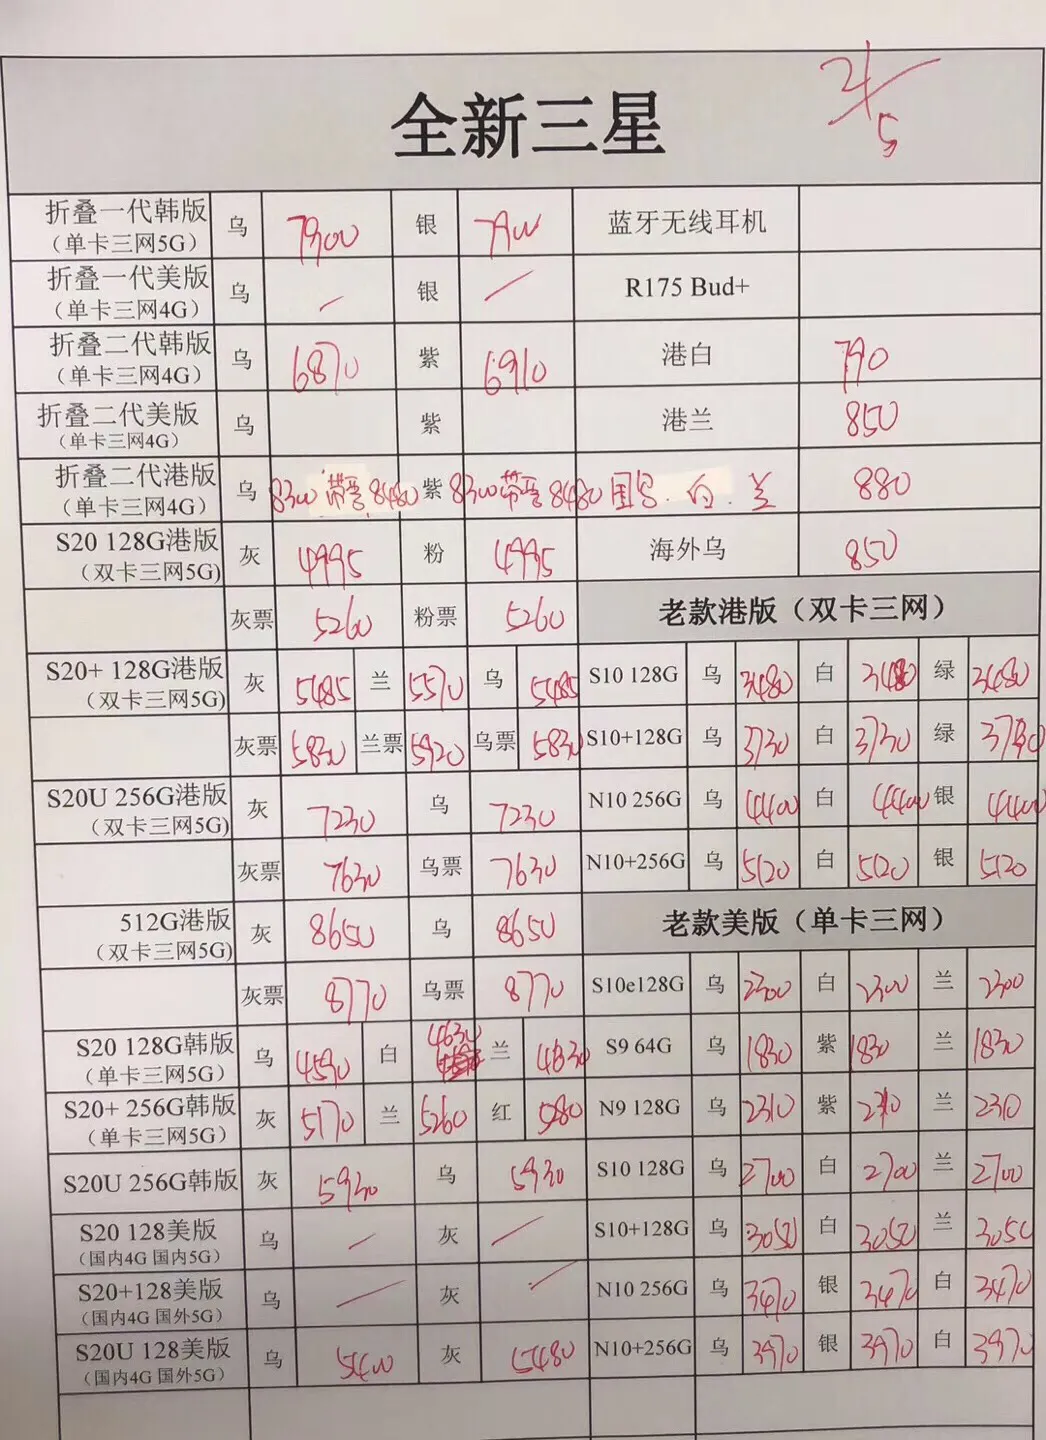 全新三星
2/5
折叠一代韩版 乌 7900 银 7900 蓝牙无线耳机
（单卡三网5G）
折叠一代美版 乌 / 银 / R175 Bud+
（单卡三网4G）
折叠二代韩版 乌 6870 紫 6910 港白 790
（单卡三网4G）
折叠二代美版 乌 紫 港兰 850
（单卡三网4G）
折叠二代港版 乌 8300 带票 8480 紫 8300 带票 8480 国行.白.兰 880
（单卡三网4G）
S20 128G港版 灰 4995 粉 4995 海外乌 850
（双卡三网5G）
灰票 5260 粉票 5260 老款港版（双卡三网）
S20+ 128G港版 灰 5485 兰 5570 乌 5485 S10 128G 乌 3480 白 3480 绿 3480
（双卡三网5G）
灰票 5830 兰票 5920 乌票 5830 S10+128G 乌 3730 白 3730 绿
S20U 256G港版 灰 7230 乌 7230 N10 256G 乌 4400 白 4400 银 4400
（双卡三网5G）
灰票 7630 乌票 7630 N10+256G 乌 5120 白 5120 银 5120
512G港版 灰 8650 乌 8650 老款美版（单卡三网）
（双卡三网5G）
灰票 8770 乌票 8770 S10e128G 乌 2300 白 2300 兰 2300
S20 128G韩版 乌 4590 白 4630 兰 4630 S9 64G 乌 1830 紫 1830 兰 1830
（单卡三网5G）
S20+ 256G韩版 灰 5170 兰 5260 红 N9 128G 乌 2310 紫 2310 兰 2310
（单卡三网5G）
S20U 256G韩版 灰 5930 乌 5930 S10 128G 乌 2700 白 2700 兰 2700
S20 128美版 乌 / 灰 / S10+128G 乌 3050 白 3050 兰 3050
（国内4G 国内5G）
S20+128美版 乌 / 灰 / N10 256G 乌 3470 银 3470 白 3470
（国内4G 国外5G）
S20U 128美版 乌 5400 灰 5480 N10+256G 乌 3970 银 3970 白 3970
（国内4G 国外5G）